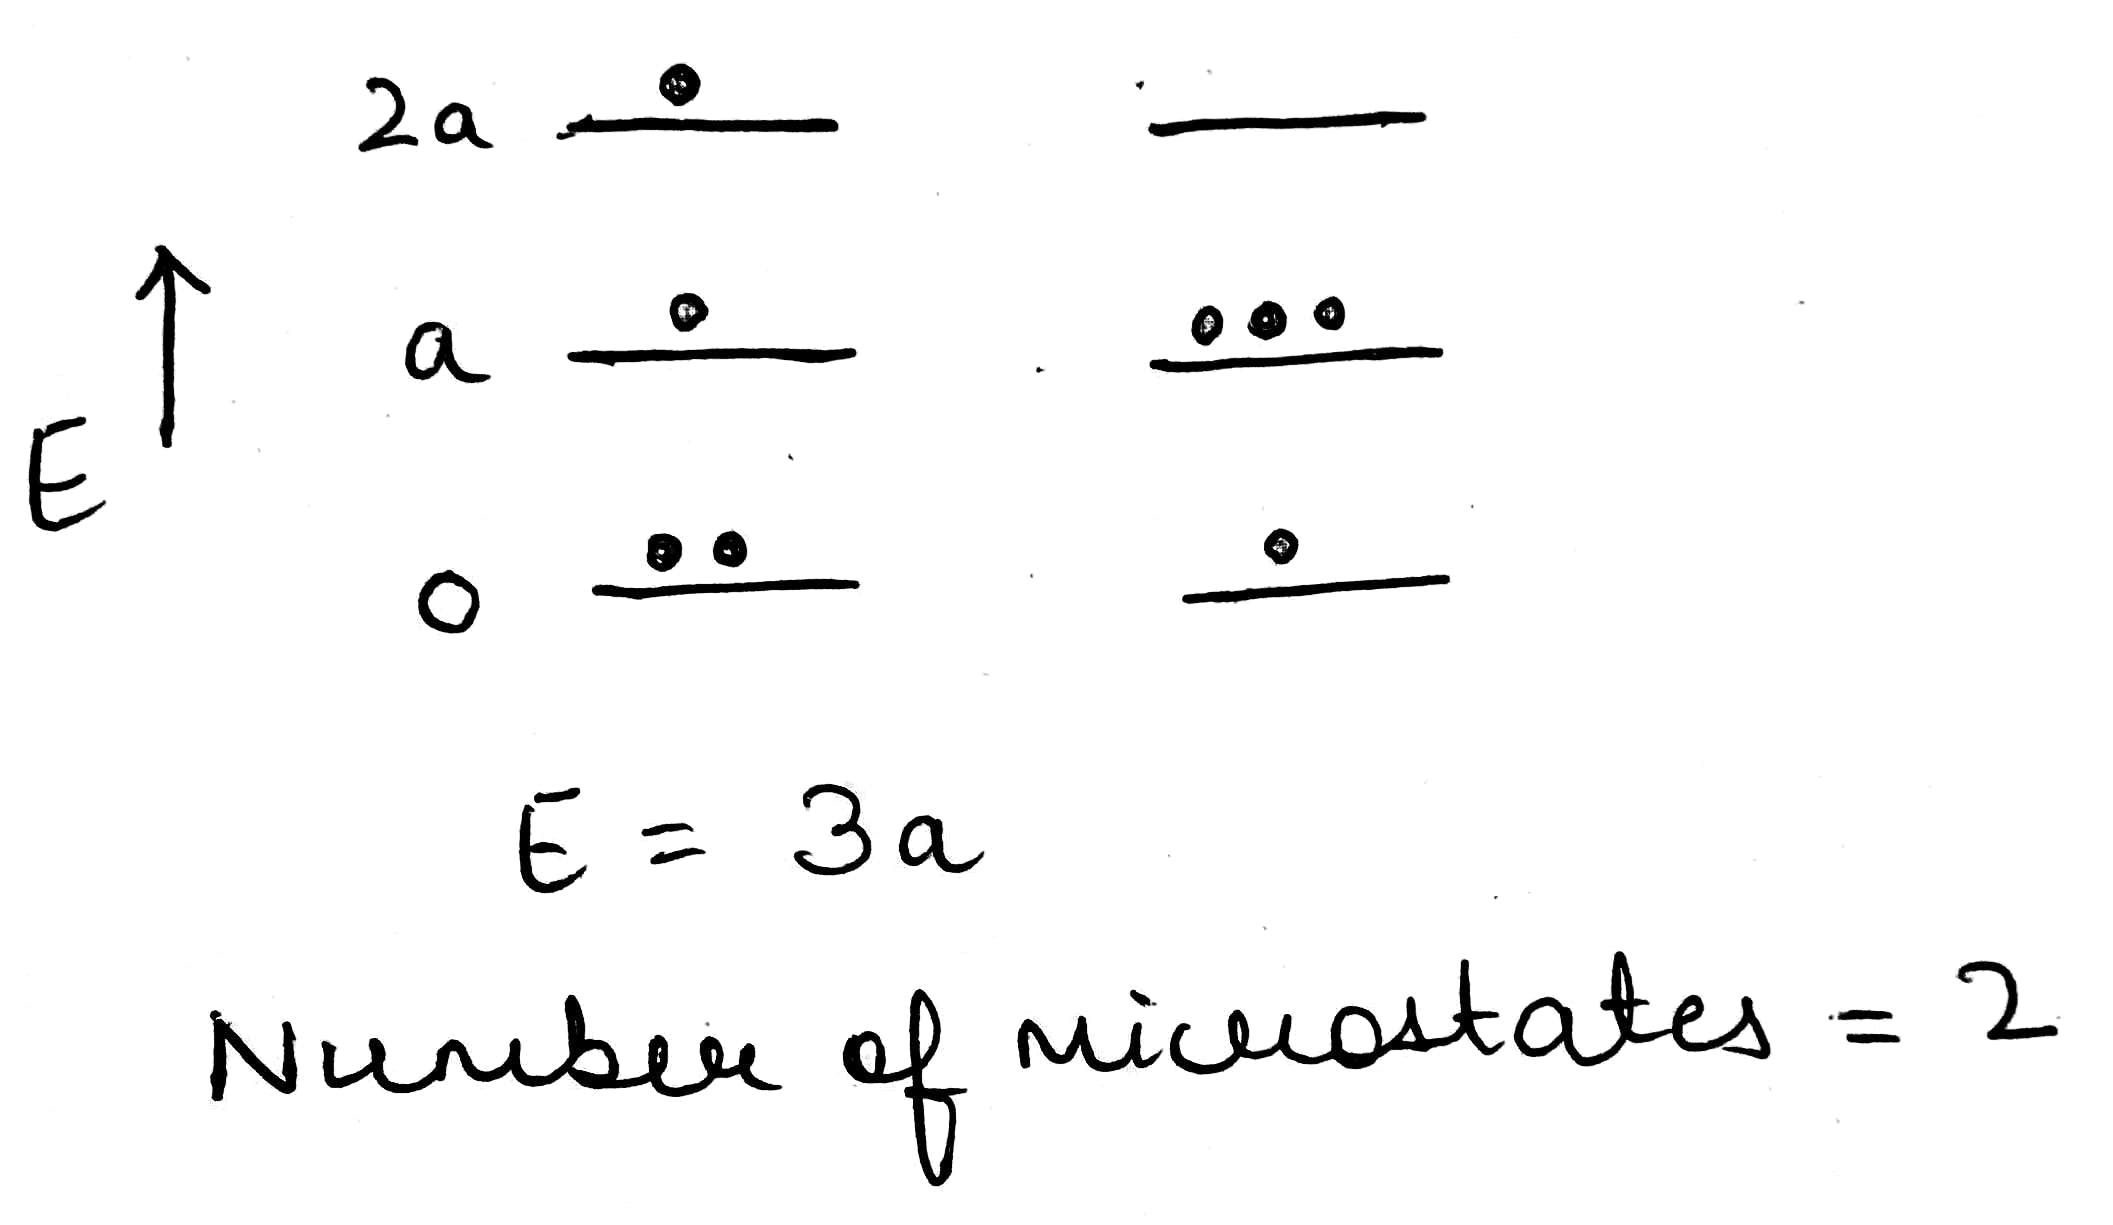 2a
a
E
0
E = 3a
Number of microstates = 2